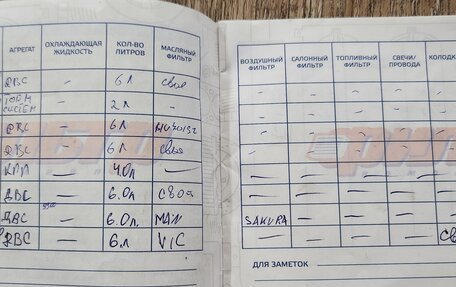 АГРЕГАТ ОХЛАЖДАЮЩАЯ ЖИДКОСТЬ КОЛ-ВО ЛИТРОВ МАСЛЯНЫЙ ФИЛЬТР
ДВС – 6 л своя
ТОРМ систем – 2 л –
ДВС – 6 л
ДВС – 6 л своя
КПП — 4.0 л —
ДВС — 6.0 л своя
ДВС — 6.0 л MAN
ДВС — 6 л VIC
ВОЗДУШНЫЙ ФИЛЬТР САЛОННЫЙ ФИЛЬТР ТОПЛИВНЫЙ ФИЛЬТР СВЕЧИ/ПРОВОДА КОЛОДК
– – – –
– – – –
– – – –
– – – –
— — — —
— — — —
SAKURA — — —
— — — — св
ДЛЯ ЗАМЕТОК